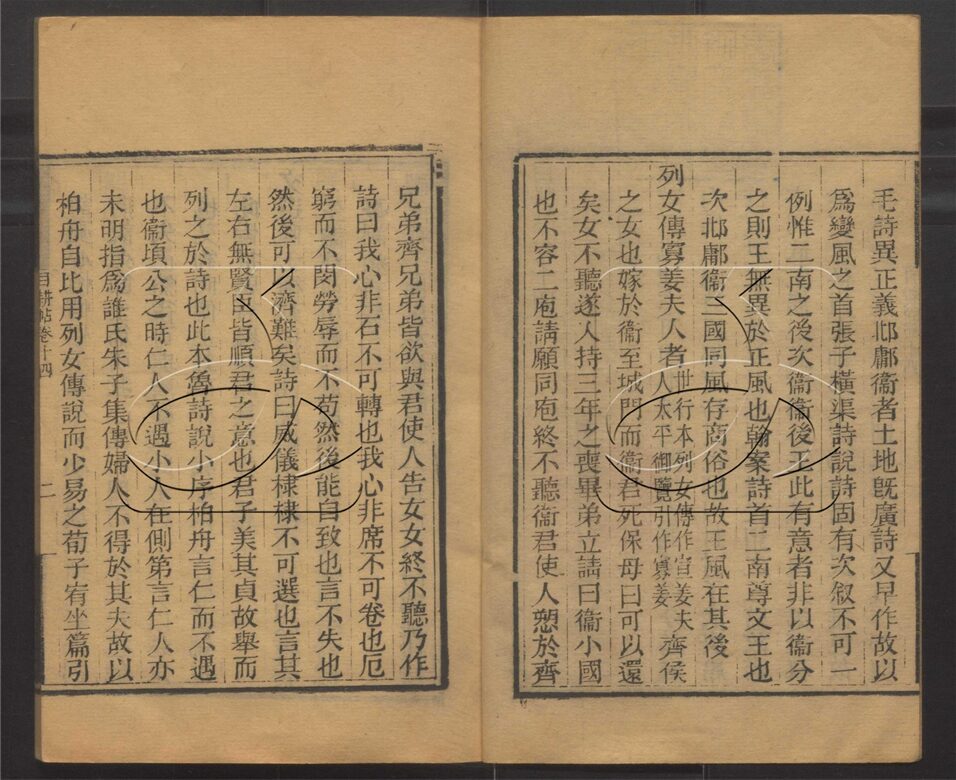 毛詩異正義邶鄘衞者土地旣廣詩又早作故以
爲變風之首張子橫渠詩說詩固有次叙不可一
例惟二南之後次衞衞後王此有意者非以衞分
之則王無異於正風也翰案詩首二南尊文王也
次邶鄘衞三國同風存商俗也故王風在其後
列女傳寡姜夫人者世行本列女傳作宣姜夫人太平御覽引作寡姜齊侯
之女也嫁於衞至城門而衞君死保母曰可以還
矣女不聽遂入持三年之喪畢弟立請曰衞小國
也不容二庖請願同庖終不聽衞君使人愬於齊
兄弟齊兄弟皆欲與君使人告女女終不聽乃作
詩曰我心非石不可轉也我心非席不可卷也厄
窮而不閔勞辱而不苟然後能自致也言不失也
然後可以濟難矣詩曰威儀棣棣不可選也言其
左右無賢臣皆順君之意也君子美其貞故舉而
列之於詩也此本魯詩說小序柏舟言仁而不遇
也衞頃公之時仁人不遇小人在側第言仁人亦
未明指爲誰氏朱子集傳婦人不得於其夫故以
柏舟自比用列女傳說而少易之荀子宥坐篇引
目耕帖卷十四
二